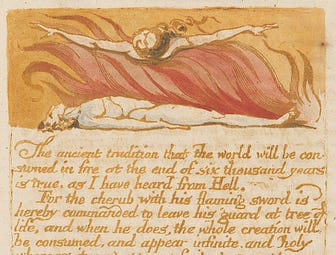 The ancient tradition that the world will be con-
sumed in fire at the end of six thousand years
is true, as I have heard from Hell.
For the cherub with his flaming sword is
hereby commanded to leave his guard at tree of
life, and when he does, the whole creation will
be consumed, and appear infinite, and holy